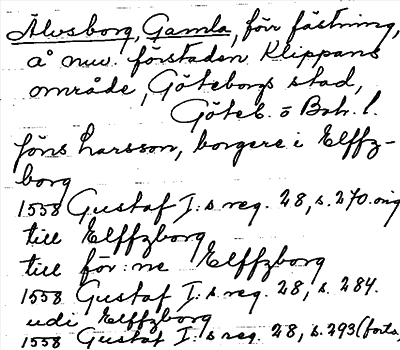 Älvsborg, Gamla, förr fästning,
å nuv. förstaden Klippans
område, Göteborgs stad,
Göteb. o Boh. l.
Jöns Larsson, borgere i Elffz-
borg
1558 Gustaf I:s reg. 28, s. 270. orig
till Elffzborg
till för:ne Elffzborg
1558 Gustaf I:s reg. 28, s. 284.
udi Elffzborg
1558 Gustaf I:s reg. 28, s. 293 (forts,